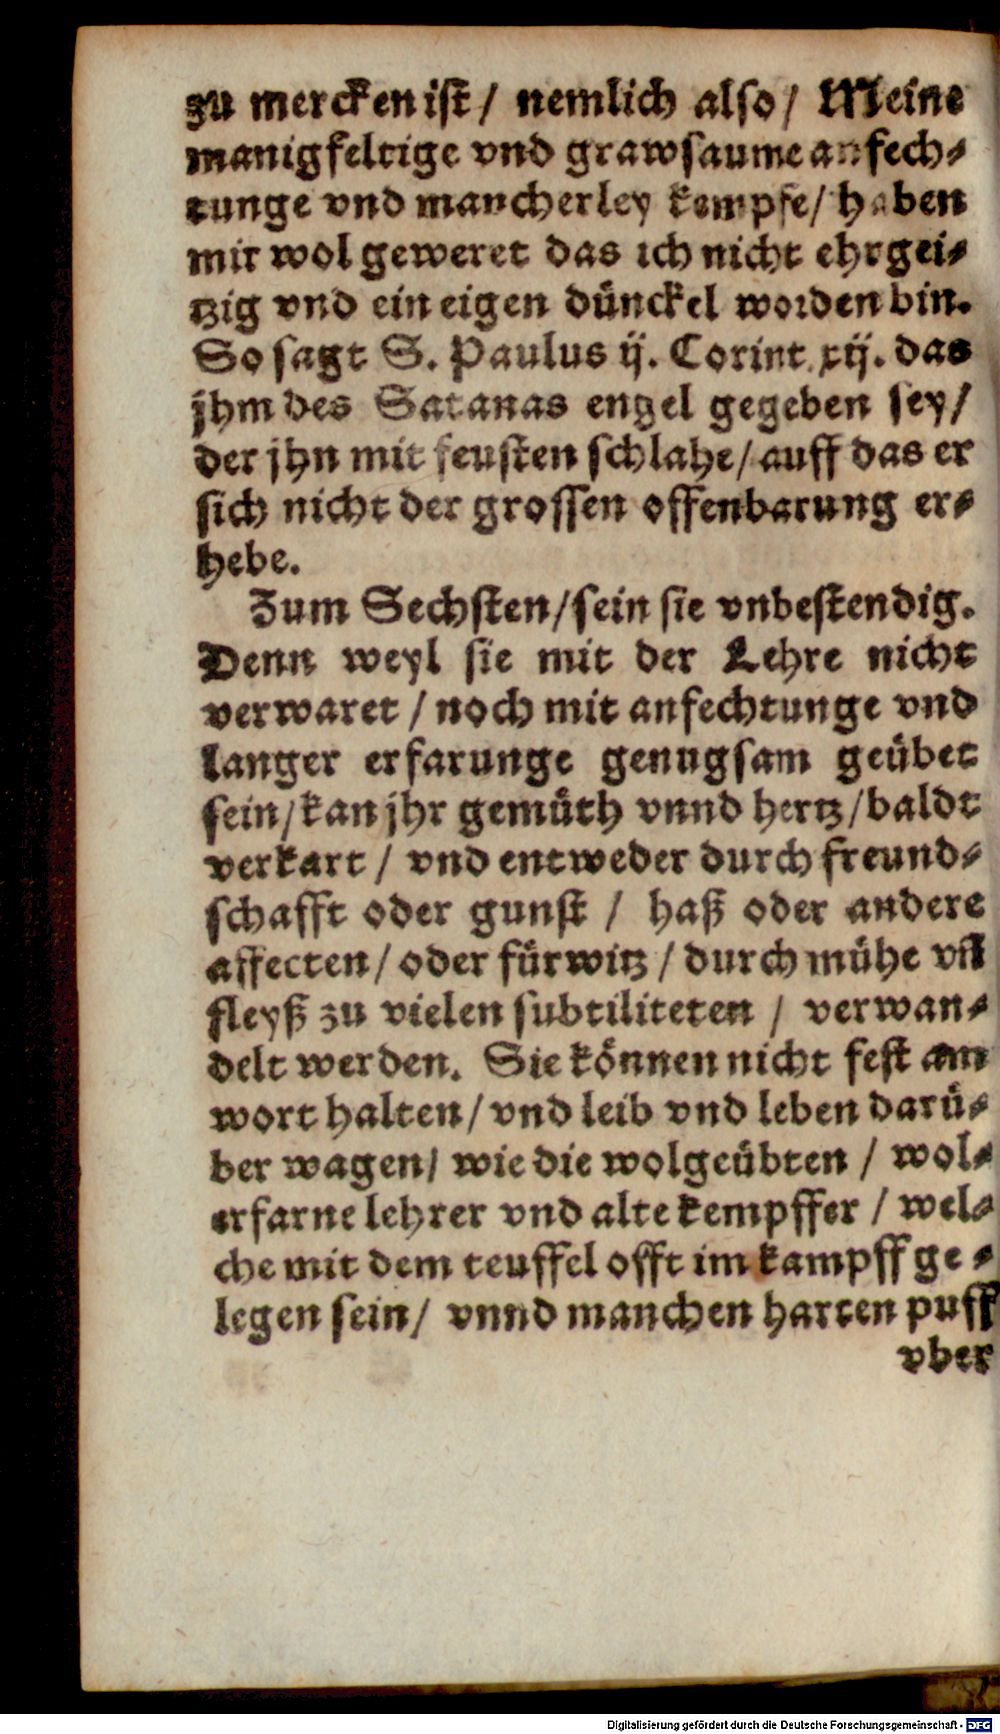 zu mercken ist/ nemlich also/ Meine
manigfeltige vnd grawsaume anfech⸗
tunge vnd mancherley kempfe/ haben
mir wol geweret das ich nicht ehrgei⸗
tzig vnd ein eigen dünckel worden bin.
So sagt S. Paulus ij. Corint. xij. das
jhm des Satanas engel gegeben sey/
der jhn mit feusten schlahe/ auff das er
sich nicht der grossen offenbarung er⸗
hebe.
Zum Sechsten/ sein sie vnbestendig.
Denn weyl sie mit der Lehre nicht
verwaret / noch mit anfechtunge vnd
langer erfarunge genugsam geübet
sein/ kan jhr gemüth vnnd hertz/ baldt
verkart / vnd entweder durch freund⸗
schafft oder gunst / haß oder andere
affecten/ oder fürwitz / durch mühe vñ
fleyß zu vielen subtiliteten / verwan⸗
delt werden. Sie können nicht fest am
wort halten/ vnd leib vnd leben darü⸗
ber wagen/ wie die wolgeübten / wol⸗
erfarne lehrer vnd alte kempffer / wel⸗
che mit dem teuffel offt im kampff ge⸗
legen sein/ vnnd manchen harten puff
vber
Digitalisierung gefördert durch die Deutsche Forschungsgemeinschaft - DFG